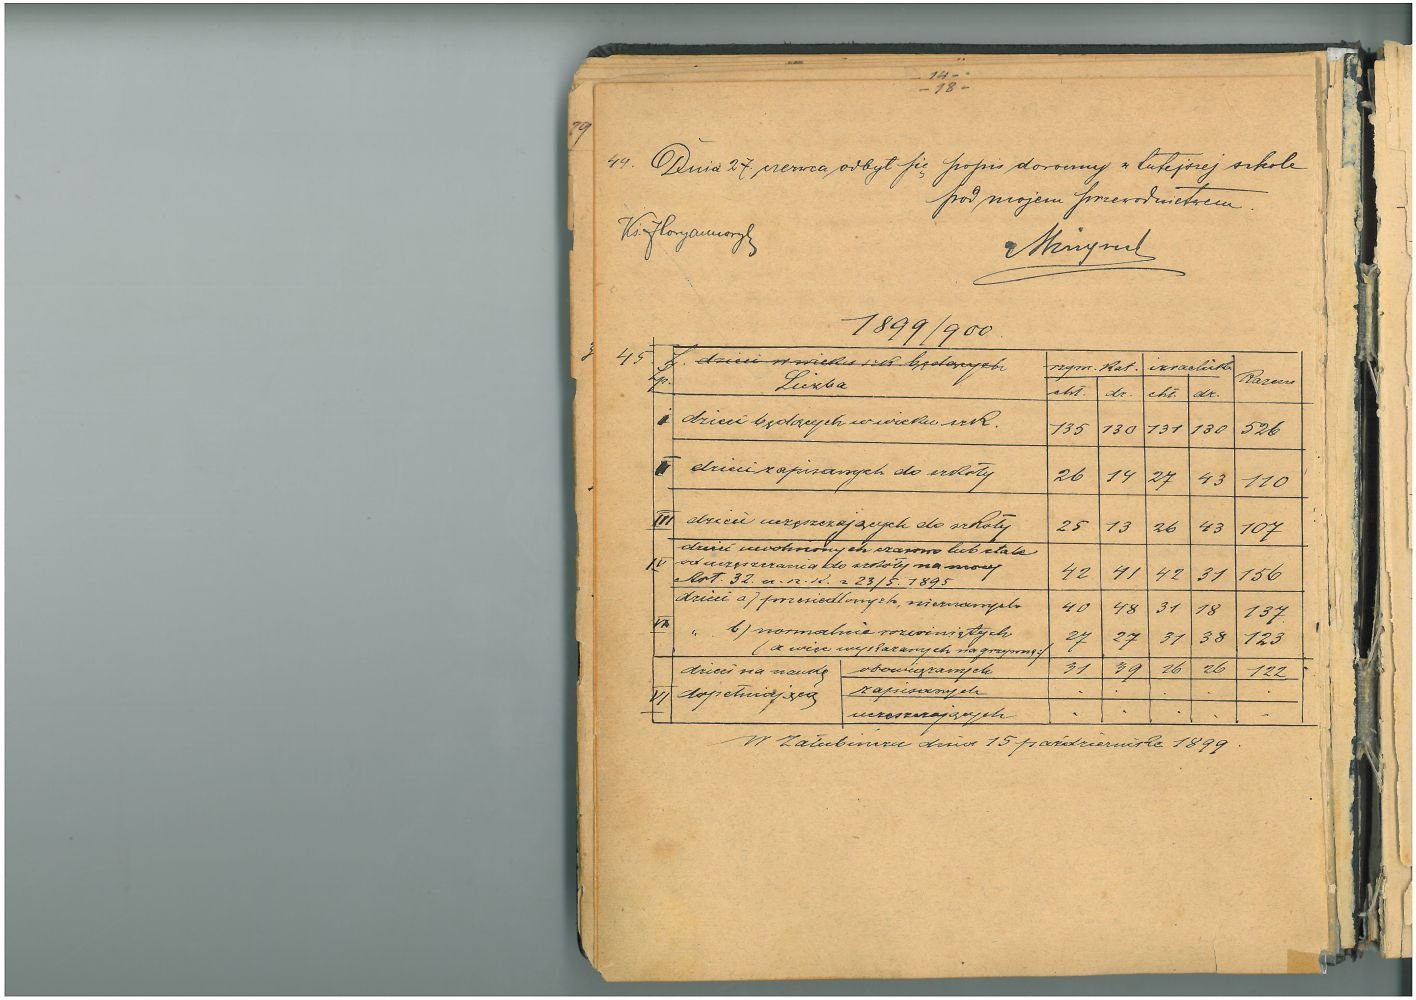 -14-
-18-
79
44. Dnia 27 czerwca odbył się popis doroczny w tutejszej szkole
pod mojem przewodnictwem.
Ks.
1899/900
3
45 dzieci w wieku szk będących rzym. kat. izraelick. Razem
Lp. Liczba chł. dz. chł. dz.
I dzieci będących w wieku szk. 135 130 131 130 526
II dzieci zapisanych do szkoły 26 14 27 43 110
III dzieci uczęszczających do szkoły 25 13 26 43 107
dzieci uwolnionych czasowo lub stale
IV od uczęszczania do szkoły na mocy 42 41 42 31 156
Art. 32. z 23/5. 1895
dzieci a) przesiedlonych, nieznanych 40 48 31 18 137
" b) normalnie rozwiniętych 27 27 31 38 123
(a więc wykazanych na grzywnę)
dzieci na naukę obowiązanych 31 39 26 26 122
VI dopełniającą zapisanych . . . . .
uczęszczających . . . . -
W Załubińczu dnia 15 października 1899.